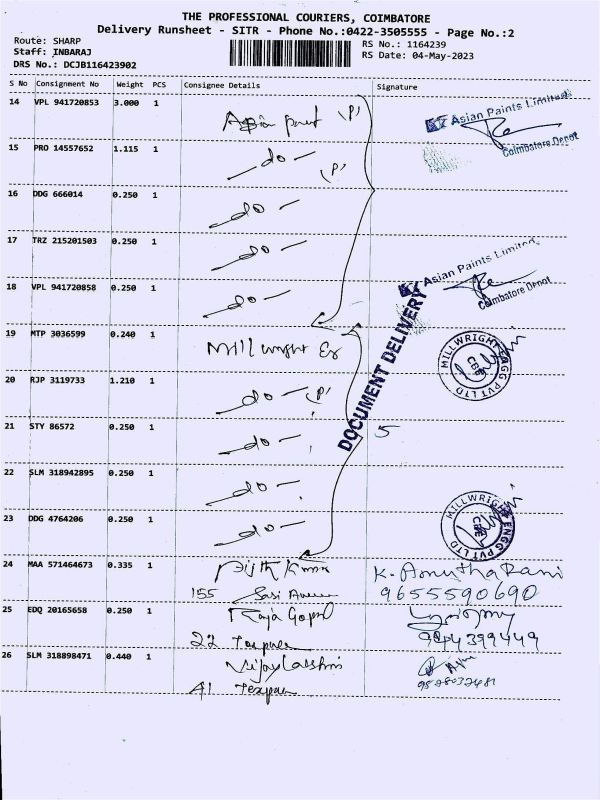 THE PROFESSIONAL COURIERS, COIMBATORE
Delivery Runsheet - SITR - Phone No.:0422-3505555 - Page No.:2
Route: SHARP
Staff: INBARAJ
DRS No.: DCJB116423902
RS No.: 1164239
RS Date: 04-May-2023
S No Consignment No Weight PCS Consignee Details Signature
14 VPL 941720853 3.000 1 (P)
Asian Paints Limited
Coimbatore Depot
15 PRO 14557652 1.115 1 - do - (P)
16 DDG 666014 0.250 1 - do -
17 TRZ 215201503 0.250 1 - do -
18 VPL 941720858 0.250 1 - do -
Asian Paints Limited
Coimbatore Depot
DOCUMENT DELIVERY
19 MTP 3036599 0.240 1 Millwright
MILLWRIGHT ENGG PVT LTD
CBE
20 RJP 3119733 1.210 1 - do - (P)
21 STY 86572 0.250 1 - do - 5
22 SLM 318942895 0.250 1 - do -
23 DDG 4764206 0.250 1 - do -
MILLWRIGHT ENGG PVT LTD
CBE
24 MAA 571464673 0.335 1 K. Anutha Rani
155 Sasi 9655590690
25 EDQ 20165658 0.250 1 Raja Gopal
22 9944399449
26 SLM 318898471 0.440 1 Vijay Lakshmi
A1